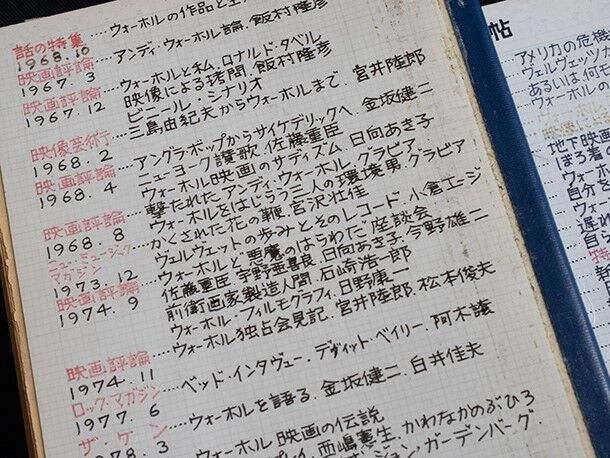 話の特集 …ウォーホルの作品と
1968.10
アンディ・ウォーホル論、飯村隆彦
映画評論
1967.3
ウォーホルと私、ロナルド・タベル
映画評論
映像による拷問、飯村隆彦
1967.12
ビニール・シナリオ
三島由紀夫からウォーホルまで、宮井陸郎
映像芸術
1968.2 …アングラ・ポップからサイケデリックへ、金坂健二
ニューヨーク讃歌、佐藤重臣
映画評論
1968.4 …ウォーホル映画のサディズム、日向あき子
撃たれたアンディ・ウォーホル、グラビア
映画評論 …ウォーホルをはじらう三人の環境男、グラビア
1968.8 かくされた花の鞭、宮沢壮佳
ニュー・ミュージックマガジン …ヴェルヴェットの歩みとそのレコード、小倉エージ
1973.12
映画評論 …ウォーホルと悪魔のはらわた、座談会
1974.9 佐藤重臣、宇野亜喜良、日向あき子、今野雄二
前衛画家製造人間、石崎浩一郎
ウォーホル・フィルモグラフィ、日野康一
ウォーホル独占会見記、宮井陸郎、松本俊夫
映画評論
1974.11 …ベッド・インタヴュー・デヴィット・ベイリー、阿木譲
ロック・マガジン
1977.6 …ウォーホルを語る、金坂健二、白井佳夫
ザ・ケン
1978.3 ウォーホル映画の伝説
西嶋憲生、かわなかのぶひろ
ジョン・ガーデンバーグ
帖
アメリカの危機
ヴェルヴェッツ
あるいは、何
ウォーホルの
地下映画
ぼろ着の
ウォーホ
自分